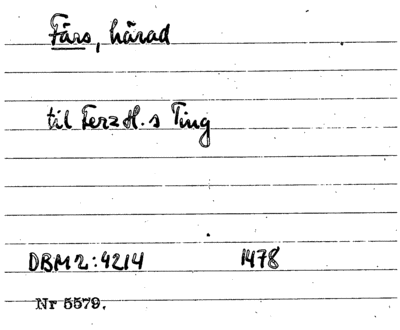 Färs, härad
til Ferz H. s Ting
DBM 2:4214 1478
Nr 5579.